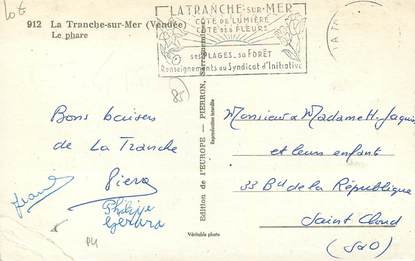 912 La Tranche-sur-Mer (Vendée)
Le phare
LA TRANCHE-SUR-MER
CÔTE DE LUMIÈRE
CÔTE DES FLEURS
ses PLAGES _ sa FORÊT
Renseignements au Syndicat d'Initiative
85
Bons baisers
de La Tranche
Pierre
Philippe
Gérard
Edition de l'EUROPE - PIERRON, Sarreguemines
Reproduction interdite
Véritable photo
Monsieur & Madame H.
et leurs enfants
33 Bd de la République
Saint Cloud
(S&O)